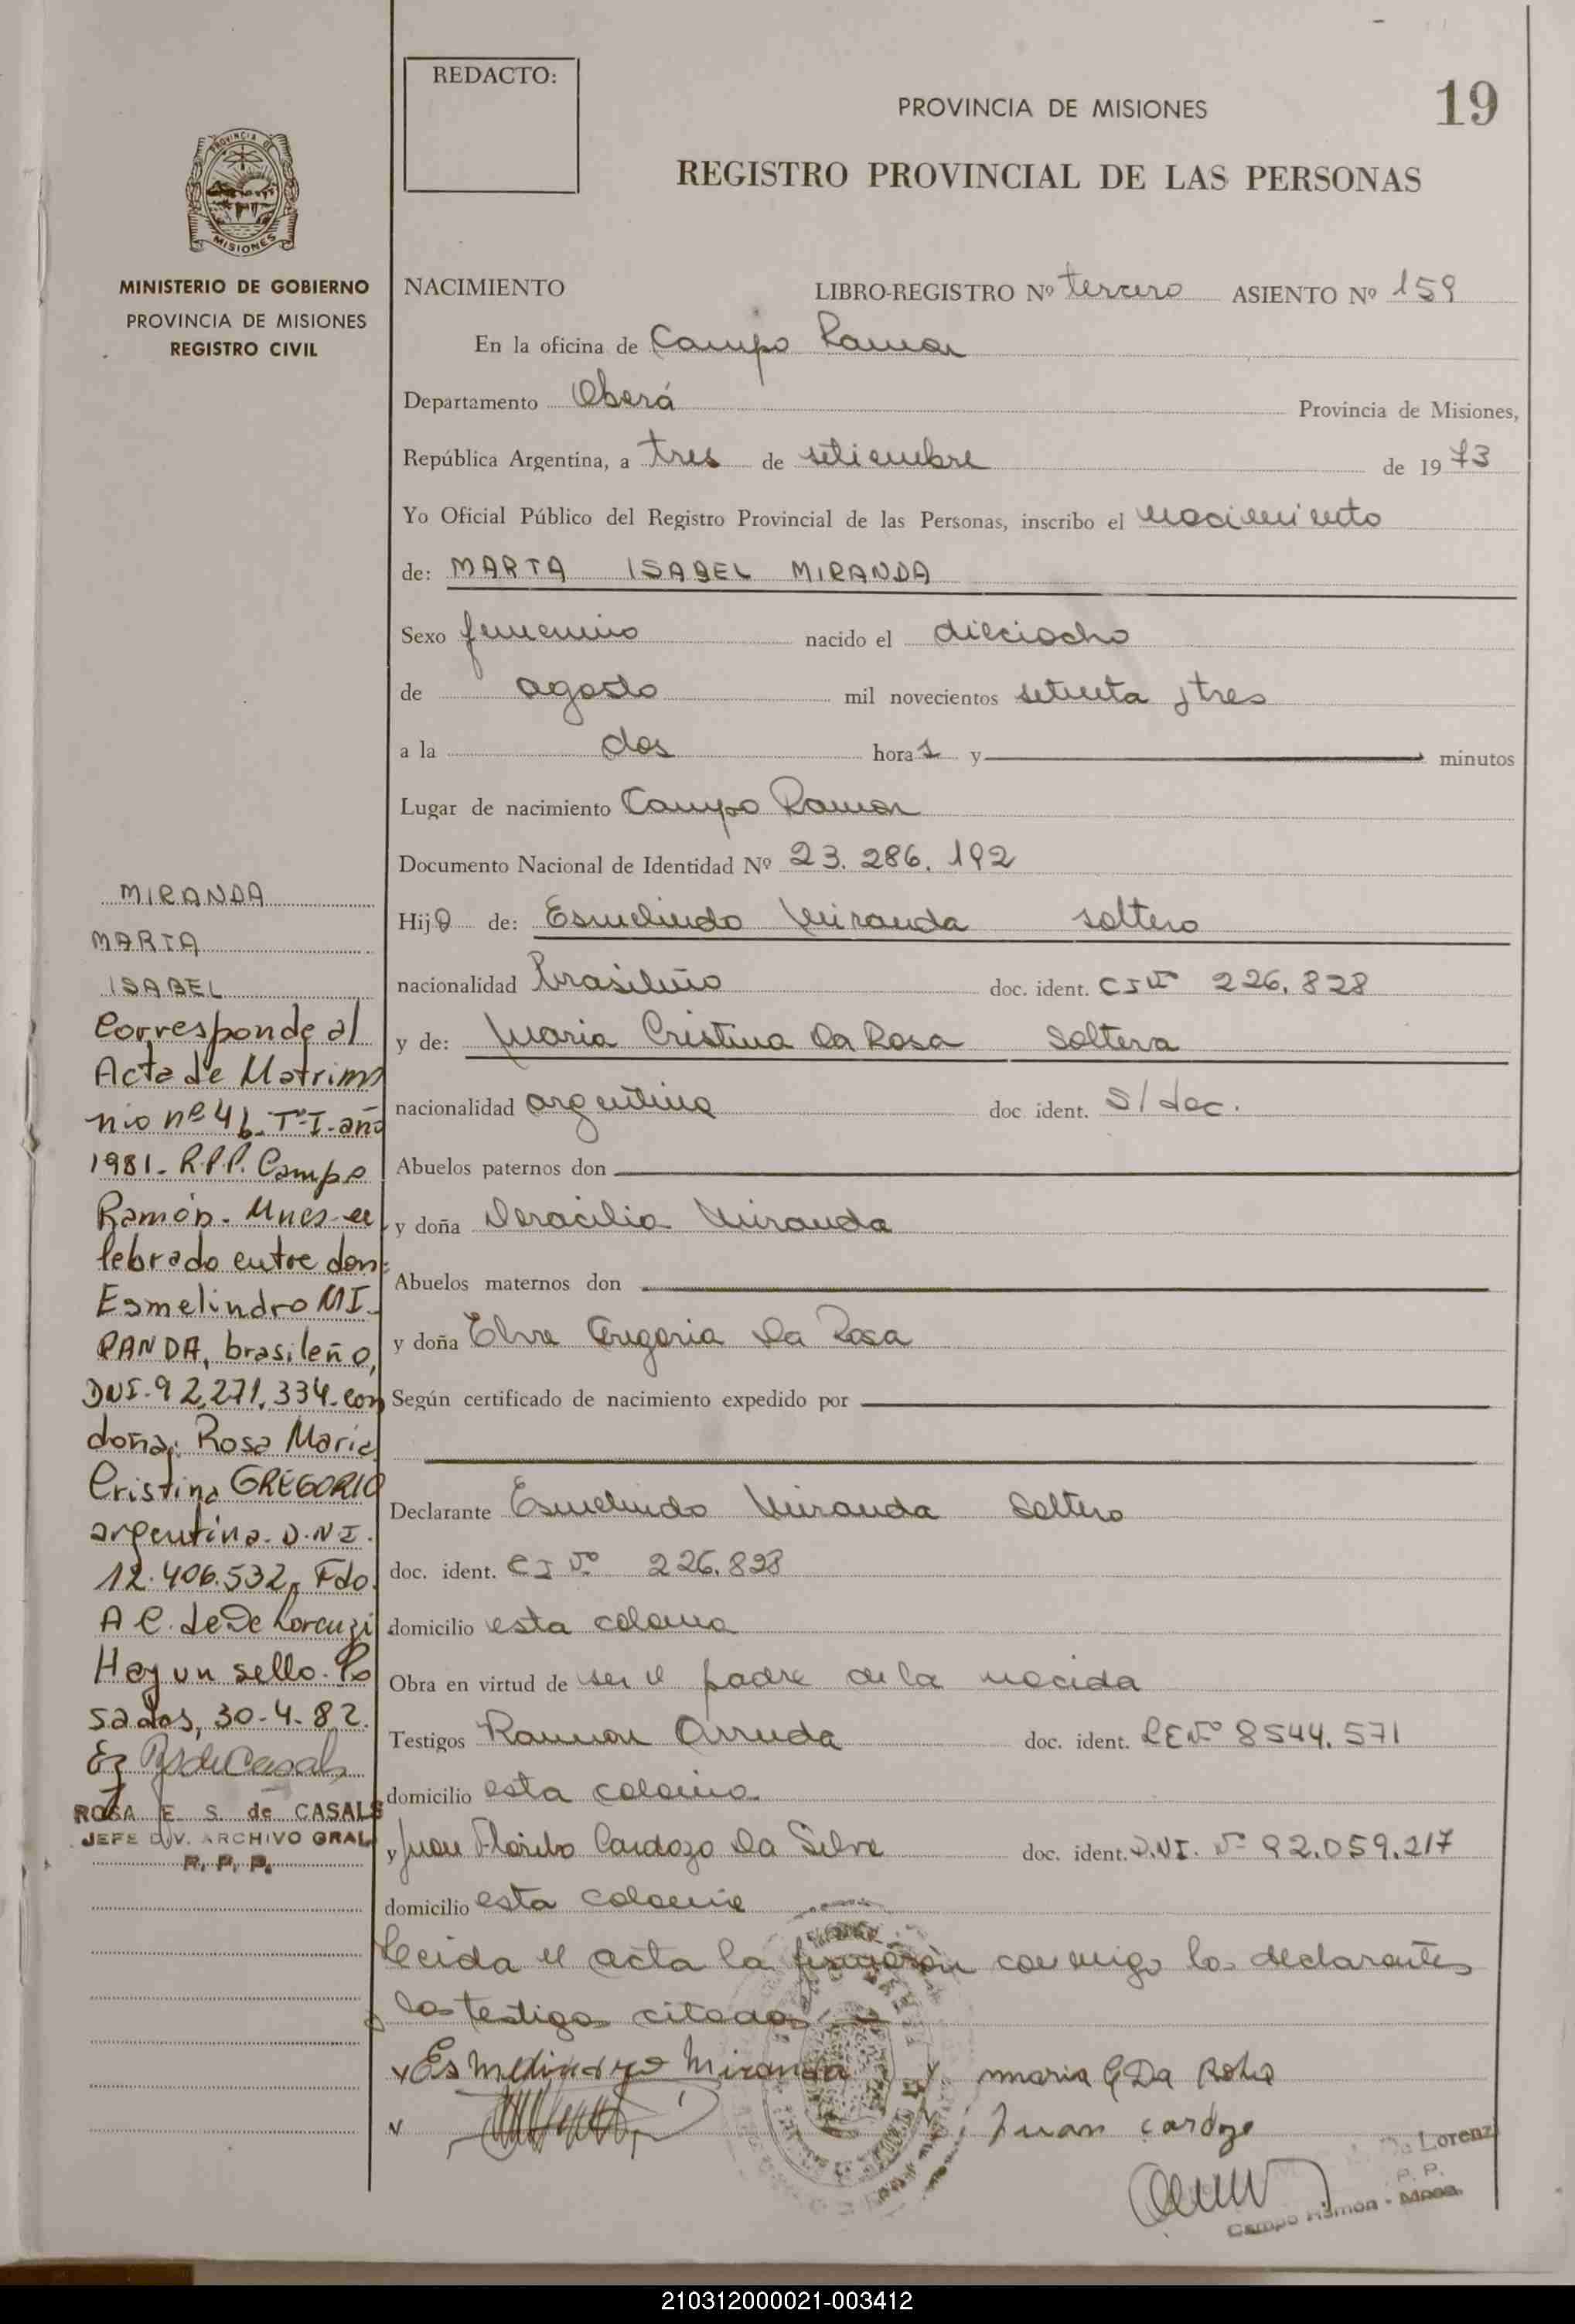 REDACTO:
PROVINCIA DE MISIONES
19
REGISTRO PROVINCIAL DE LAS PERSONAS
PROVINCIA DE
MISIONES
MINISTERIO DE GOBIERNO
PROVINCIA DE MISIONES
REGISTRO CIVIL
NACIMIENTO LIBRO-REGISTRO Nº tercero ASIENTO Nº 159
En la oficina de Campo Ramon
Departamento Oberá Provincia de Misiones,
República Argentina, a tres de setiembre de 1973
Yo Oficial Público del Registro Provincial de las Personas, inscribo el nacimiento
de: MARTA ISABEL MIRANDA
Sexo femenino nacido el dieciocho
de agosto mil novecientos setenta y tres
a la dos horas y minutos
Lugar de nacimiento Campo Ramon
Documento Nacional de Identidad Nº 23.286.192
Hija de: Esmelindo Miranda soltero
nacionalidad brasileño doc. ident. CI Nº 226.828
y de: Maria Cristina Da Rosa soltera
nacionalidad argentina doc. ident. S/doc.
Abuelos paternos don
y doña Doracilia Miranda
Abuelos maternos don
y doña Gregoria Da Rosa
Según certificado de nacimiento expedido por
Declarante Esmelindo Miranda soltero
doc. ident. CI Nº 226.828
domicilio esta colonia
Obra en virtud de ser el padre de la nacida
Testigos Ramon Arruda doc. ident. LE Nº 8544.571
domicilio esta colonia
y Juan Cardozo Da Silva doc. ident. D.N.I. Nº 92.059.217
domicilio esta colonia
Leida el acta la firmaron conmigo los declarantes
y los testigos citados
Miranda maria C Da Rosa
Juan Cardozo
De Lorenzi
P. P.
Campo Ramón - Mnes.
MIRANDA
MARTA
ISABEL
Corresponde al
Acta de Matrimo
nio nº 46. Tº I. año
1981. R.P.P. Campo
Ramón. Mnes. ce
lebrado entre don:
Esmelindro MI
RANDA, brasileño,
DNI. 92.271.334. con
doña: Rosa Maria
Cristina GREGORIO
argentina. D.N.I.
12.406.532. Fdo.
A C. de De Lorenzi
Hay un sello. Po
sadas, 30-4-82.
ROSA E. S. de CASALS
JEFE DIV. ARCHIVO GRAL
R. P. P.
210312000021-003412